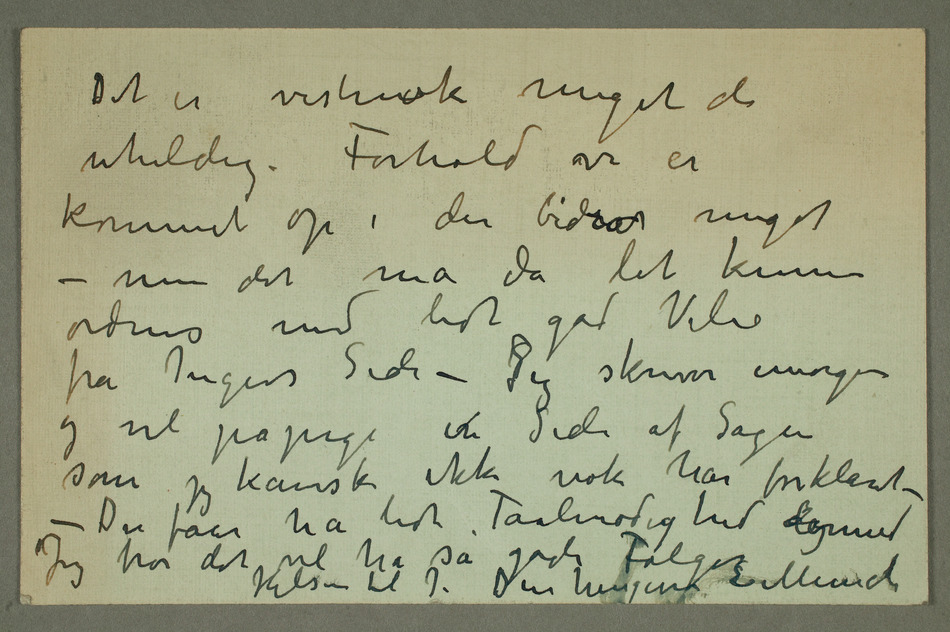 Det er vistnok meget de
uheldig. Forhold vi er
kommet op i der bidrar meget
– men det må da let kunne
ordnes med lidt god Vilie
fra Ingers Side – Jeg skriver imorgen
og vil påpege en Side af Sagen
som jeg kanske ikke nok har forklaret –
– Du faar ha lidt Taalmodighed dermed
Jeg tror det vil ha så gode Følger
Hilsen til I. Din hengivne E Munch